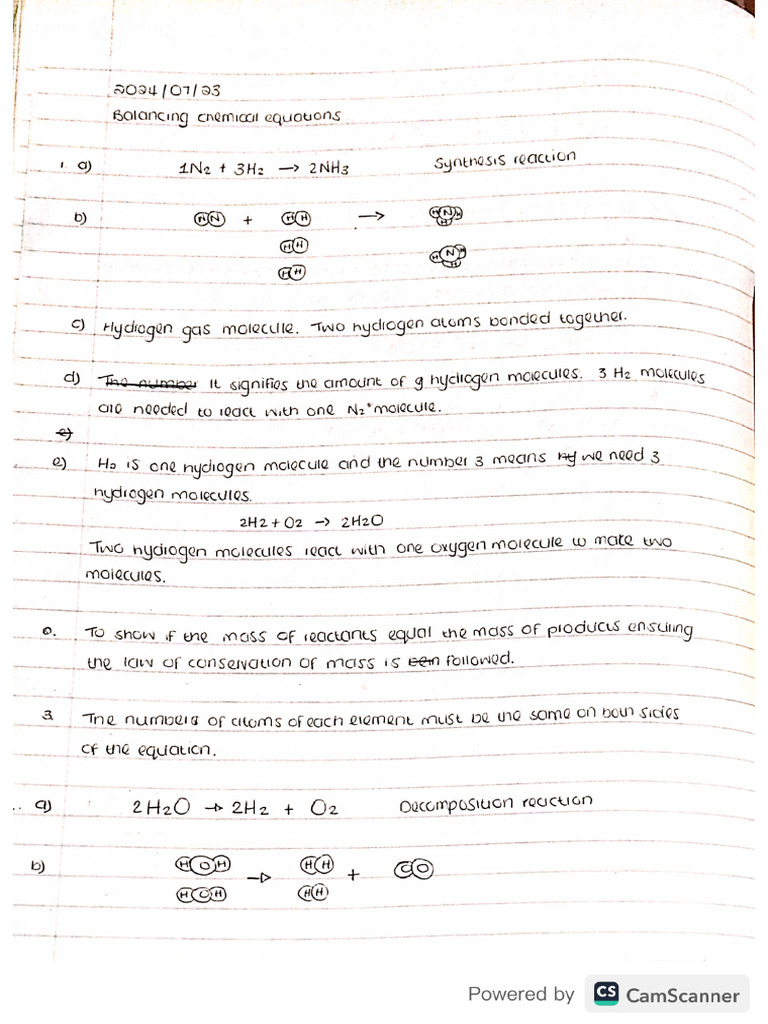 2024/07/23
Balancing chemical equations
1. a) 1N2 + 3H2 → 2NH3 Synthesis reaction
b) HN + HH → HNHH
HH
HNHH
HH
c) Hydrogen gas molecule. Two hydrogen atoms bonded together.
d) The number It signifies the amount of g hydrogen molecules. 3 H2 molecules
are needed to react with one N2 molecule.
e)
e) H2 is one hydrogen molecule and the number 3 means we need 3
hydrogen molecules.
2H2 + O2 → 2H2O
Two hydrogen molecules react with one oxygen molecule to make two
molecules.
2. To show if the mass of reactants equal the mass of products ensuring
the law of conservation of mass is bein followed.
3 The numbers of atoms of each element must be the same on both sides
of the equation.
a) 2H2O → 2H2 + O2 Decomposition reaction
b) HOH → HH + OO
HOH HH
Powered by CS CamScanner